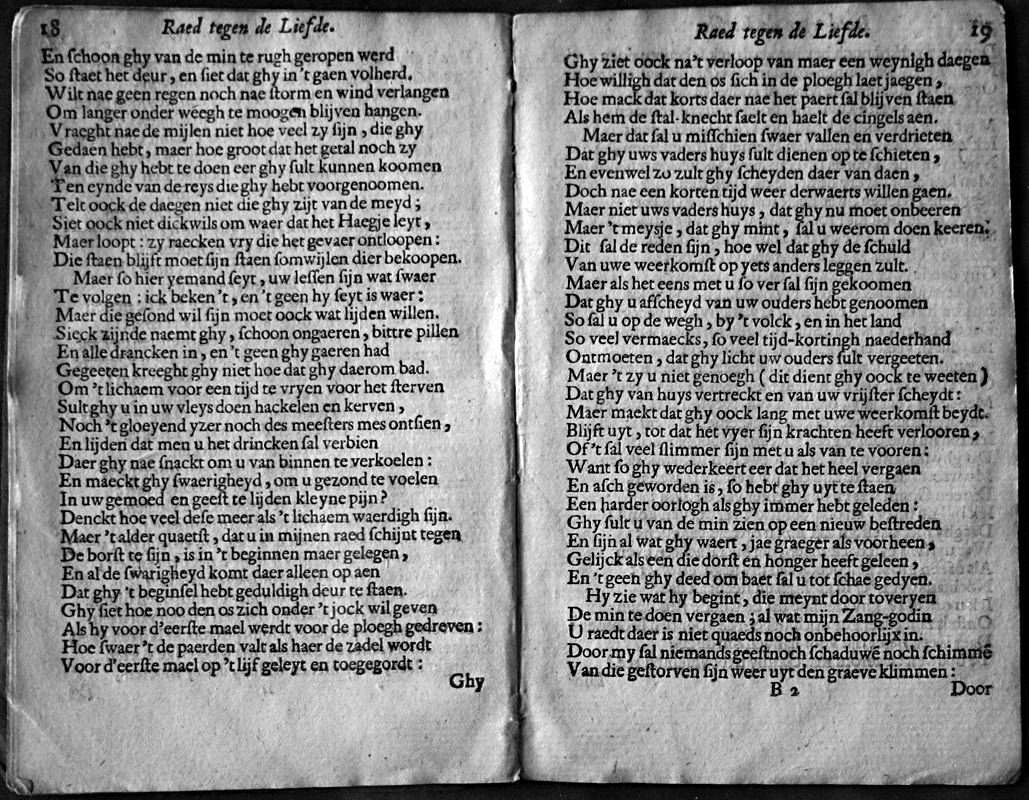 18 Raed tegen de Liefde.
En ſchoon ghy van de min te rugh geropen werd
So ſtaet het deur, en ſiet dat ghy in't gaen volherd.
Wilt nae geen regen noch nae ſtorm en wind verlangen
Om langer onder weegh te moogen blijven hangen.
Vraeght nae de mijlen niet hoe veel zy ſijn, die ghy
Gedaen hebt, maer hoe groot dat het getal noch zy
Van die ghy hebt te doen eer ghy ſult kunnen koomen
Ten eynde van de reys die ghy hebt voorgenoomen.
Telt oock de daegen niet die ghy zijt van de meyd;
Siet oock niet dickwils om waer dat het Haegje leyt,
Maer loopt: zy raecken vry die het gevaer ontloopen:
Die ſtaen blijft moet ſijn ſtaen ſomwijlen dier bekoopen.
Maer ſo hier yemand ſeyt, uw leſſen ſijn wat ſwaer
Te volgen: ick beken't, en 't geen hy ſeyt is waer:
Maer die geſond wil ſijn moet oock wat lijden willen.
Sieck zijnde naemt ghy, ſchoon ongaeren, bittre pillen
En alle drancken in, en't geen ghy gaeren had
Gegeeten kreeght ghy niet hoe dat ghy daerom bad.
Om 't lichaem voor een tijd te vryen voor het ſterven
Sult ghy u in uw vleys doen hackelen en kerven,
Noch 't gloeyend yzer noch des meeſters mes ontſien,
En lijden dat men u het drincken ſal verbien
Daer ghy nae ſnackt om u van binnen te verkoelen:
En maeckt ghy ſwaerigheyd, om u gezond te voelen
In uw gemoed en geeſt te lijden kleyne pijn?
Denckt hoe veel deſe meer als 't lichaem waerdigh ſijn.
Maer 't alder quaetſt, dat u in mijnen raed ſchijnt tegen
De borſt te ſijn, is in 't beginnen maer gelegen,
En al de ſwarigheyd komt daer alleen op aen
Dat ghy 't beginſel hebt geduldigh deur te ſtaen.
Ghy ſiet hoe noo den os zich onder 't jock wil geven
Als hy voor d'eerſte mael werdt voor de ploegh gedreven:
Hoe ſwaer 't de paerden valt als haer de zadel wordt
Voor d'eerſte mael op 't lijf geleyt en toegegordt:
Ghy
Raed tegen de Liefde. 19
Ghy ziet oock na't verloop van maer een weynigh daegen
Hoe willigh dat den os ſich in de ploegh laet jaegen,
Hoe mack dat korts daer nae het paert ſal blijven ſtaen
Als hem de ſtal-knecht ſaelt en haelt de cingels aen.
Maer dat ſal u miſſchien ſwaer vallen en verdrieten
Dat ghy uws vaders huys ſult dienen op te ſchieten,
En evenwel zo zult ghy ſcheyden daer van daen,
Doch nae een korten tijd weer derwaerts willen gaen.
Maer niet uws vaders huys, dat ghy nu moet onbeeren
Maer 't meysje, dat ghy mint, ſal u weerom doen keeren:
Dit ſal de reden ſijn, hoe wel dat ghy de ſchuld
Van uwe weerkomſt op yets anders leggen zult.
Maer als het eens met u ſo ver ſal ſijn gekoomen
Dat ghy u afſcheyd van uw ouders hebt genoomen
So ſal u op de wegh, by 't volck, en in het land
So veel vermaecks, ſo veel tijd-kortingh naederhand
Ontmoeten, dat ghy licht uw ouders ſult vergeeten.
Maer 't zy u niet genoegh (dit dient ghy oock te weeten)
Dat ghy van huys vertreckt en van uw vrijſter ſcheydt:
Maer maekt dat ghy oock lang met uwe weerkomſt beydt.
Blijft uyt, tot dat het vyer ſijn krachten heeft verlooren,
Of 't ſal veel ſlimmer ſijn met u als van te vooren:
Want ſo ghy wederkeert eer dat het heel vergaen
En aſch geworden is, ſo hebt ghy uyt te ſtaen
Een harder oorlogh als ghy immer hebt geleden:
Ghy ſult u van de min zien op een nieuw beſtreden
En ſijn al wat ghy waert, jae graeger als voorheen,
Gelijck als een die dorſt en honger heeft geleen,
En 't geen ghy deed om baet ſal u tot ſchae gedyen.
Hy zie wat hy begint, die meynt door toveryen
De min te doen vergaen; al wat mijn Zang-godin
U raedt daer is niet quaeds noch onbehoorlijx in.
Door my ſal niemands geeſt noch ſchaduwē noch ſchimmē
Van die geſtorven ſijn weer uyt den graeve klimmen:
B 2 Door